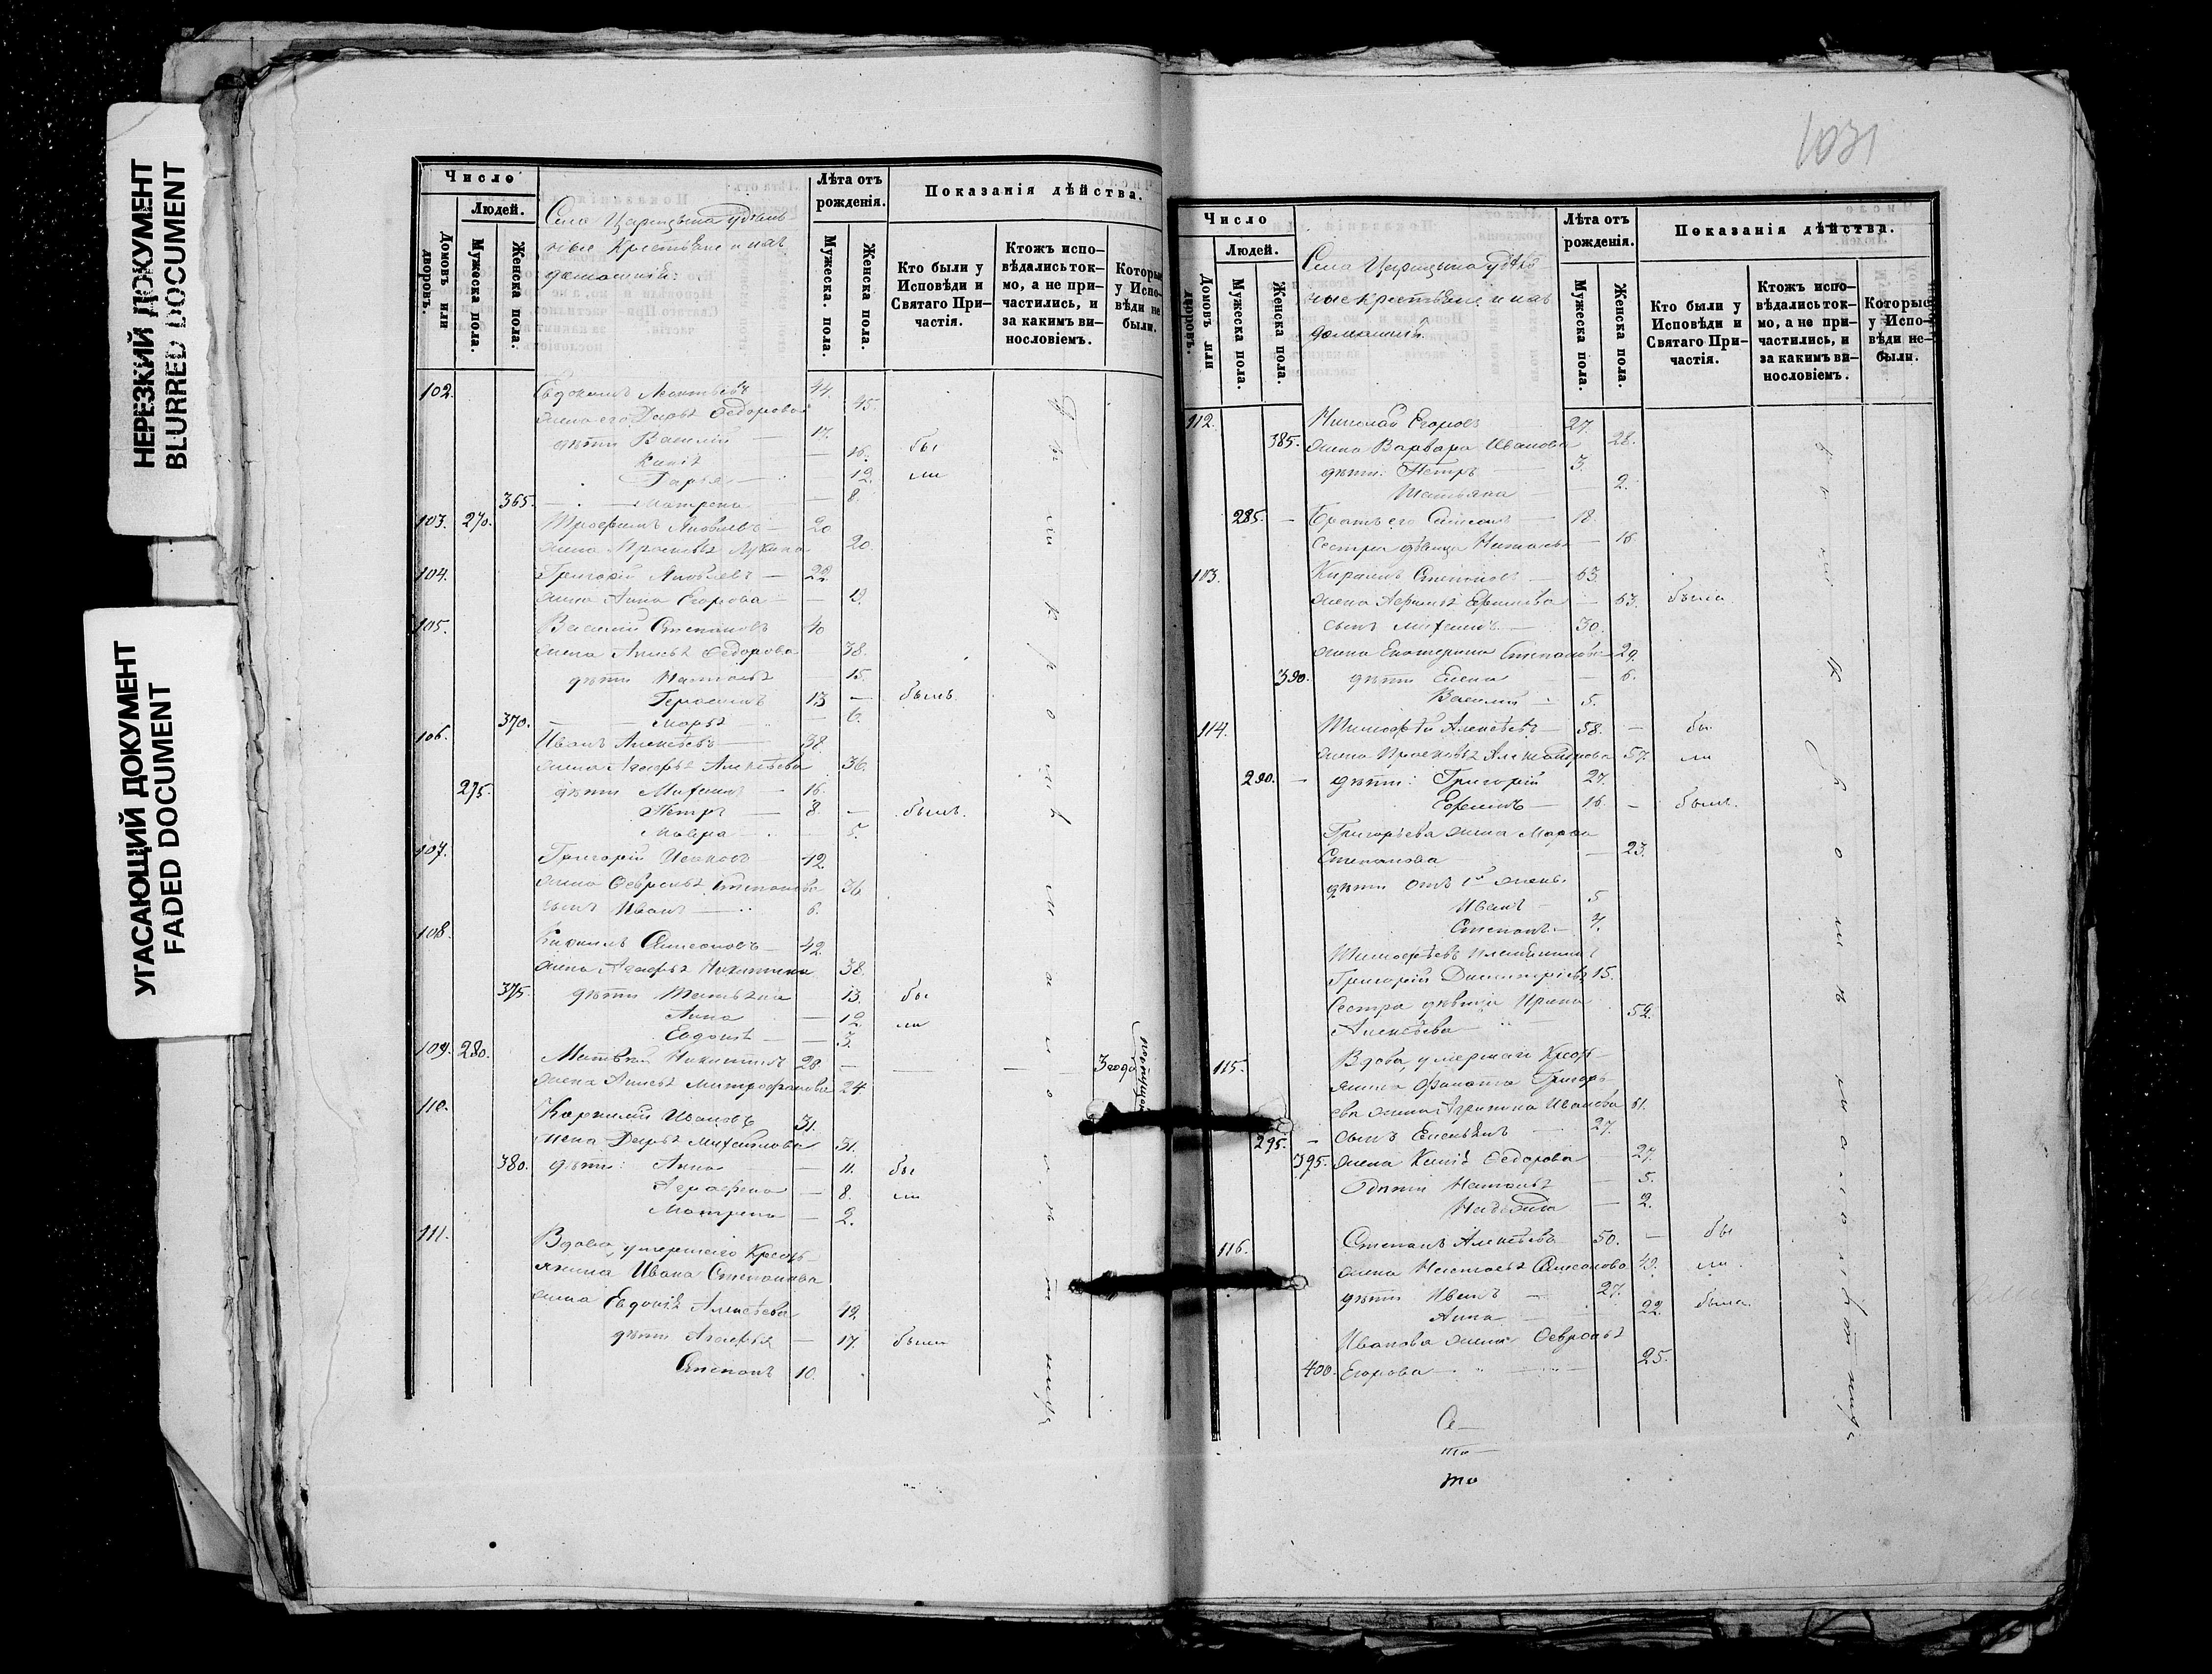 НЕРЕЗКИЙ ДОКУМЕНТ
BLURRED DOCUMENT
УГАСАЮЩИЙ ДОКУМЕНТ
FADED DOCUMENT
Число
Людей.
Домовъ или дворовъ.
Мужеска пола.
Женска пола.
Села Царицына удѣль-
ные Крестьяне и ихъ
домашніи:
Лѣта отъ рожденія.
Мужеска. пола.
Женска пола.
Показанія дѣйства.
Кто были у Исповѣди и Святаго При-частія.
Ктожъ испо-вѣдались ток-мо, а не при-частились, и за какимъ ви-нословіемъ.
Которые у Испо-вѣди не были.
102. Евдокимъ Леонтьевъ 44.
жена его Дарья Ѳедорова 45.
дѣти Василій — 17.
Ксенія — 16. бы
Дарья — 12. ли
365. Матрена — 8.
103. 270. Трофимъ Яковлевъ — 20
жена Прасковья Лукина 20.
104. Григорій Яковлевъ — 22.
жена Анна Егорова — 19.
105. Василій Степановъ 40
жена Анисья Ѳедорова 38.
дѣти Наталья 15.
Герасимъ 13 — былъ
370. Марья — 6.
106. Иванъ Алексѣевъ 38.
жена Агафья Алексѣева 36.
275. дѣти Михаилъ — 16.
Петръ — 8. — былъ.
Мавра — 5.
107. Григорій Ивановъ 42
жена Ѳевронья Степанова 36
сынъ Иванъ — 6.
108. Кириллъ Самсоновъ — 42.
жена Агафья Никитина 38.
375. дѣти Татьяна 13. бы
Анна — 12. ли
Евдокія — 3.
109. 280. Матвѣй Никитинъ 28 — 3 года
жена Анисья Митрофанова 24
110. Корнилій Ивановъ 31.
жена Дарья Михайлова 31.
380. дѣти: Анна — 11. бы
Аграфена — 8. ли
Матрена — 2.
111. Вдова, умершаго Кресть-
янина Ивана Степанова
жена Евдокія Алексѣева 42.
дѣти Агафья — 17. была
Степанъ 10.
1031
Число
Людей.
Домовъ или дворовъ.
Мужеска пола.
Женска пола.
Села Царицына удѣль-
ные крестьяне и ихъ
домашніи.
Лѣта отъ рожденія.
Мужеска пола.
Женска пола.
Показанія дѣйства.
Кто были у Исповѣди и Святаго При-частія.
Ктожъ испо-вѣдались ток-мо, а не при-частились, и за какимъ ви-нословіемъ.
Которые у Испо-вѣди не-были.
112. Николай Егоровъ 27.
385. жена Варвара Иванова 28.
дѣти: Петръ — 3.
Татьяна — 2.
285. — Братъ его Самсонъ — 18.
Сестра дѣвица Наталья — 16
113. Кириллъ Степановъ 63
жена Афимья Ефимова — 63. была
сынъ Михаилъ — 30.
жена Екатерина Степанова 29.
390. дѣти Елена — 6.
Василій — 5.
114. Тимофѣй Алексѣевъ — 58. — бы
жена Прасковья Александрова 57. ли
290. — дѣти: Григорій 27.
Ефимъ — 16 — былъ.
Григорьева жена Марфа
Степанова — 23.
дѣти отъ 1й жены.
Иванъ — 5
Степанъ — 4.
Тимофѣевъ племянникъ
Григорій Дмитріевъ 15.
Сестра дѣвица Ирина
Алексѣева — 52.
115. Вдова, умершаго Кресть-
янина Григорь-
ева жена Агрипина Иванова 61.
295. — сынъ 27.
395. жена Ксенія Ѳедорова 27.
дѣти Наталья — 5.
Надежда — 2.
116. Степанъ Алексѣевъ 50. — бы
жена Настасья Самсонова 49. ли.
дѣти Иванъ — 27.
Анна 22. была.
Иванова жена Ѳевронья
400. Егорова — 25.